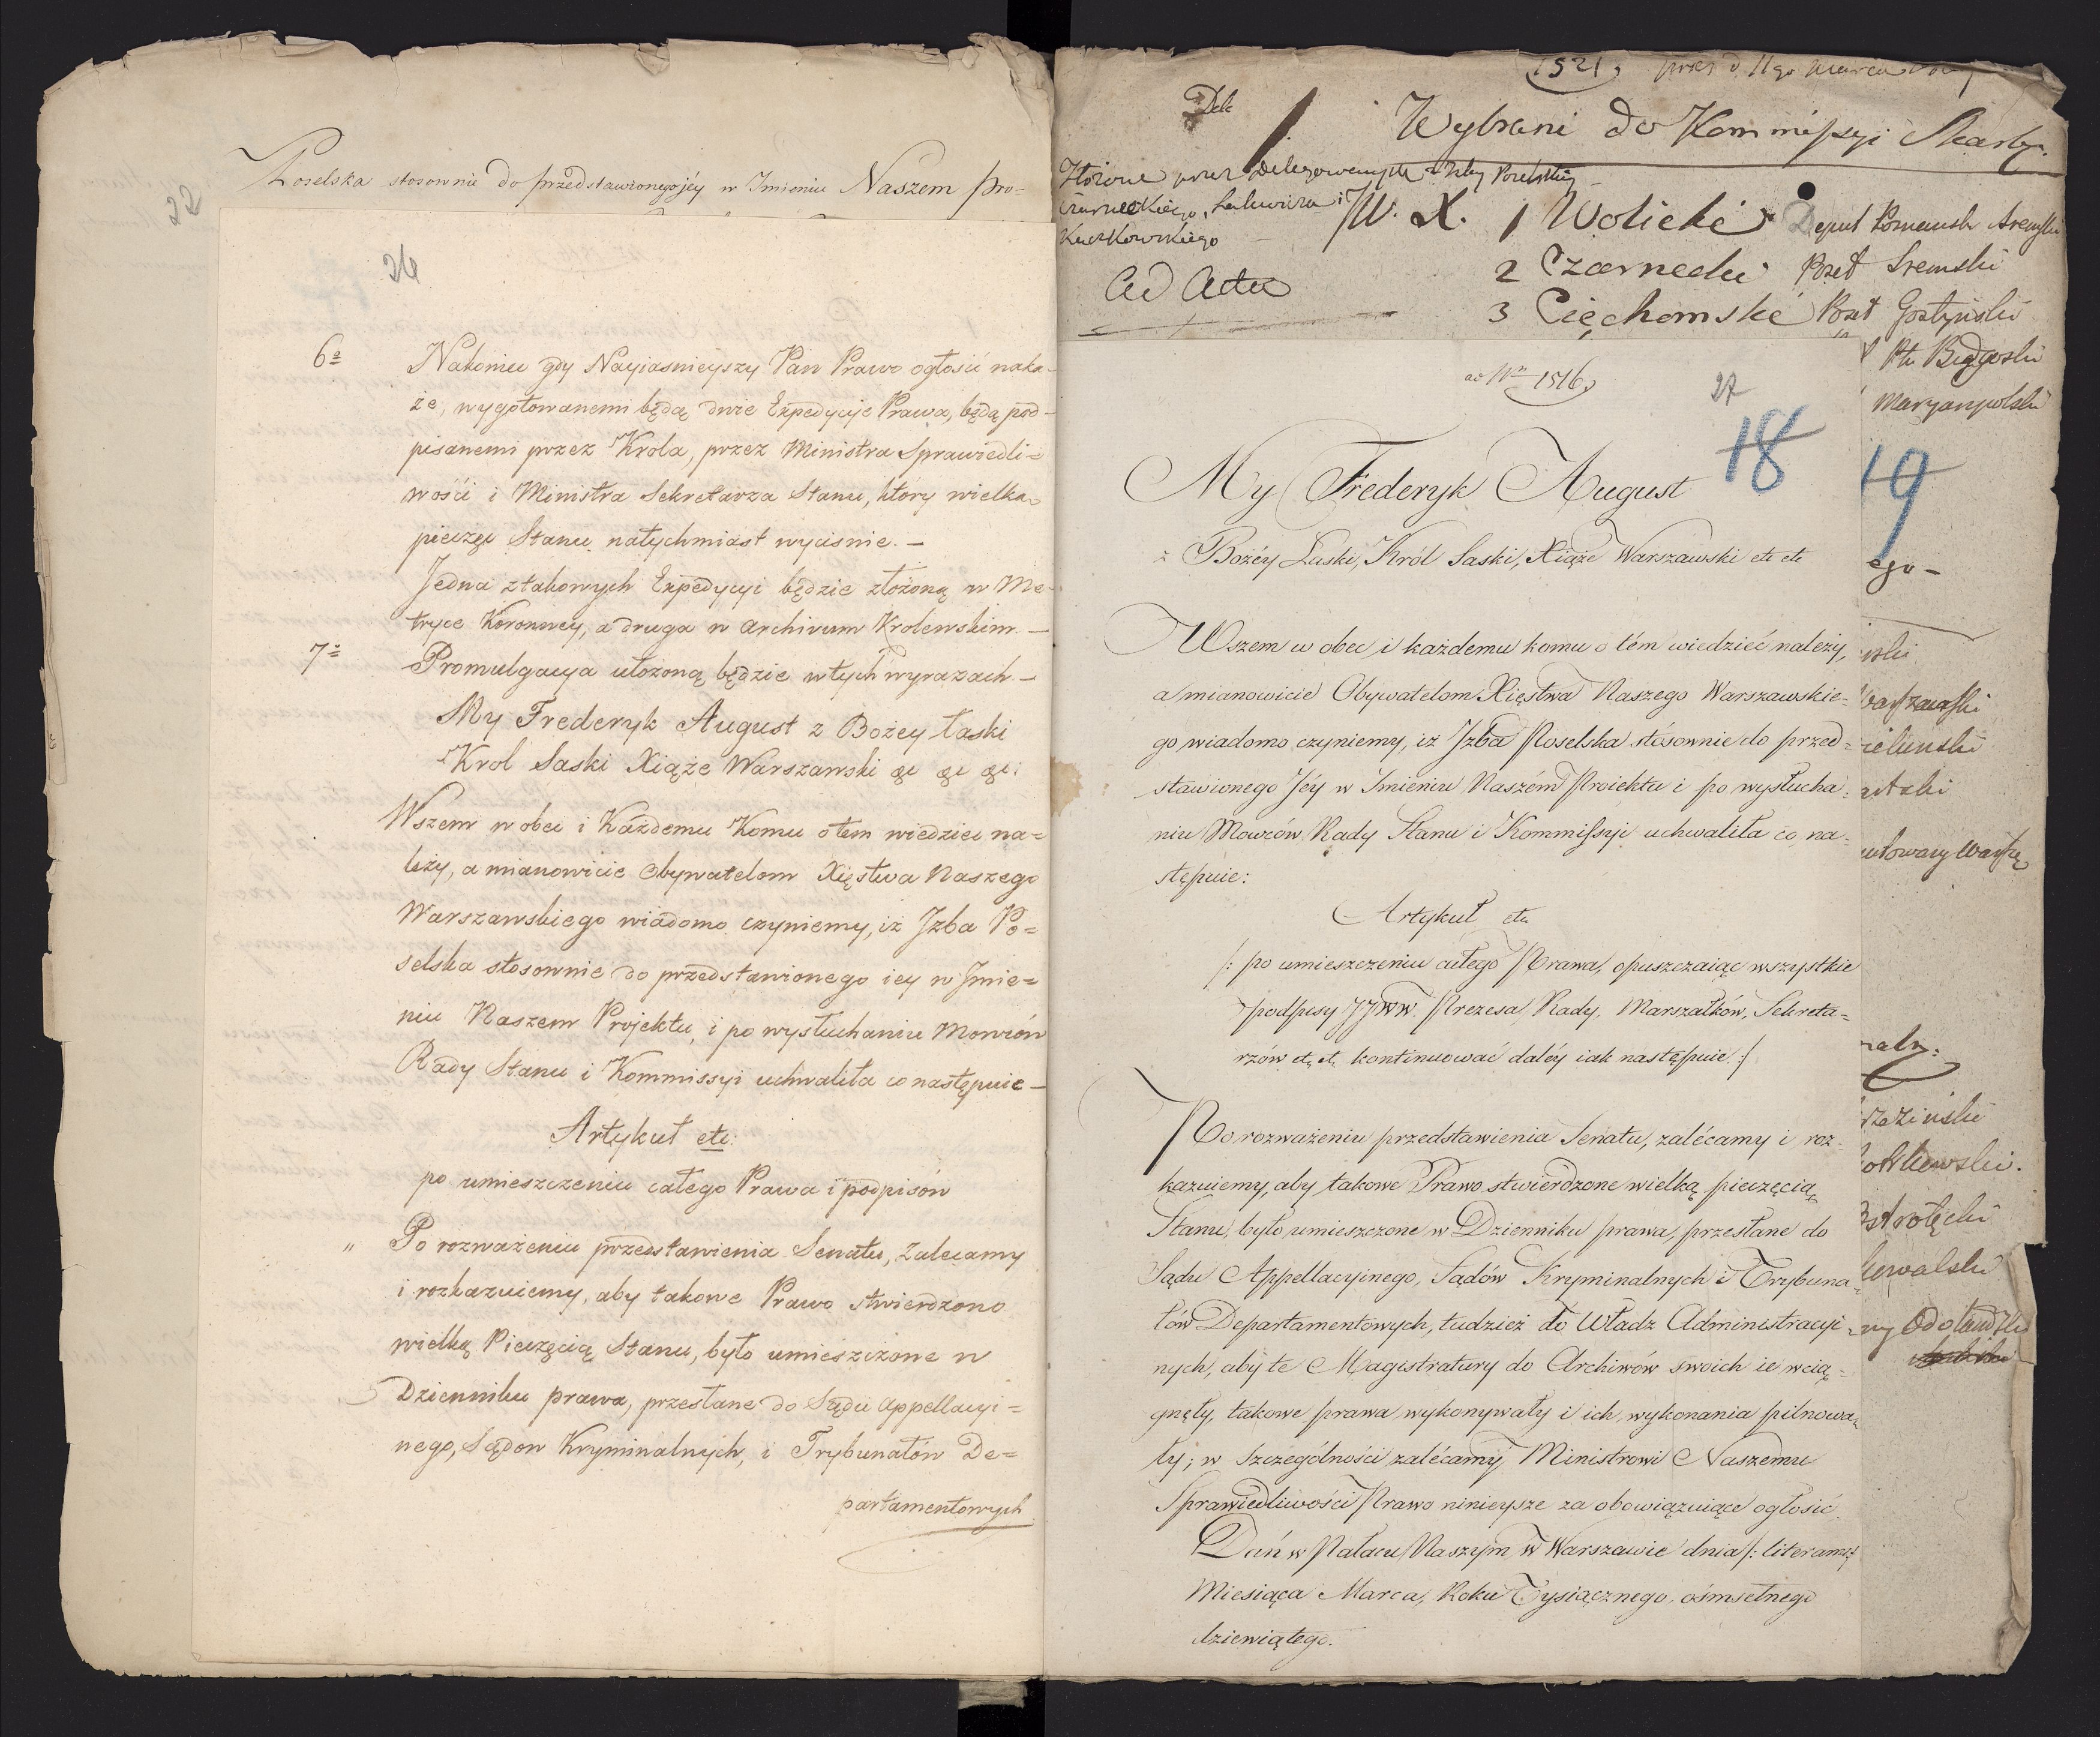 22
Poselska stosownie do przedstawionego jéy w Imieniu Naszem pro-
26
6º Nakoniec gdy Nayiasnieyszy Pan Prawo ogłosić naka-
że, wygotowanemi będą dwie Expedycye Prawa, będą pod-
pisanemi przez Krola, przez Ministra Sprawiedli=
wości i Ministra Sekretarza Stanu, ktory wielka
pieczęc Stanu natychmiast wycisnie. —
Jedna z takowych Expedycyi będzie złożoną w Me-
tryce Koronney, a druga w Archivum Krolewskim. —
7º Promulgacya ułożoną będzie w tych wyrazach —
My Frederyk August z Bożey Łaski
Krol Saski Xiąże Warszawski &c &c &c:
Wszem w obec i Każdemu Komu o tem wiedziec na=
leży, a mianowicie Obywatelom Xięstwa Naszego
Warszawskiego wiadomo czyniemy, iż Jzba Po=
selska stosownie do przedstawionego iey w Jmie=
niu Naszem Projektu, i po wysłuchaniu Mowców
Rady Stanu i Kommissyi uchwaliła co następuie —
Artykuł etc:
po umieszczeniu całego Prawa i podpisów
" Po rozważeniu przedstawienia Senatu, Zalecamy
i rozkazuiemy, aby takowe Prawo stwierdzono
wielką Pieczęcią Stanu, było umieszczone w
Dzienniku prawa, przesłane do Sądu Appellacyi=
nego, Sądow Kryminalnych, i Trybunałów De=
partamentowych
1521, przez d. 11go Marca
Dek
Wybrani do Kommissyi Skarby.
Złożone przez Delegowanych z Izby Poselskiey
Czarneckiego, Lelewela i
Kuczkowskiego
Ad Acta
JW. X. 1 Wolicki Deput Poznansk Sremski
2 Czarnecki Poseł Sremski
3 Cięchomski Poseł Gostyński
Bydgoski
Maryampolski
19
ego —
ad Nm 1516,
27
18
My Frederyk August
z Bożéy Łaski, Król Saski, Xiąże Warszawski etc etc
Wszem w obec i każdemu komu o tém wiedzieć należy,
a mianowicie Obywatelom Xięstwa Naszego Warszawskie=
go wiadomo czyniemy, iż Jzba Poselska stósownie do przed=
stawionego Jéy w Jmieniu Naszém Proiektu i po wysłucha=
niu Mowców Rady Stanu i Kommissyi uchwaliła co na=
stępuie:
Artykuł etc
/: po umieszczeniu całego Prawa, opuszczaiąc wszystkie
podpisy JJWW. Prezesa Rady, Marszałków, Sekreta=
rzów etc etc kontinuować daléy iak następuie :/
Po rozważeniu przedstawienia Senatu, zalécamy i roz=
kazuiemy, aby takowe Prawo stwierdzone wielką pieczęcią
Stanu, było umieszczone w Dzienniku prawa, przesłane do
Sądu Appellacyinego, Sądów Kryminalnych i Trybuna=
łów Departamentowych, tudzież do Władz Administracyi=
nych, aby te Magistratury do Archiwów swoich ie wcią=
gnęły, takowe prawa wykonywały i ich wykonania pilnowa=
ły; w szczególności zalécamy Ministrowi Naszemu
Sprawiedliwości Prawo ninieysze za obowiązuiące ogłosić.
Dań w Pałacu Naszym w Warszawie dnia /: literami :/
Miesiąca Marca, Roku Tysiącznego, ośmsetnego
dziewiątego.